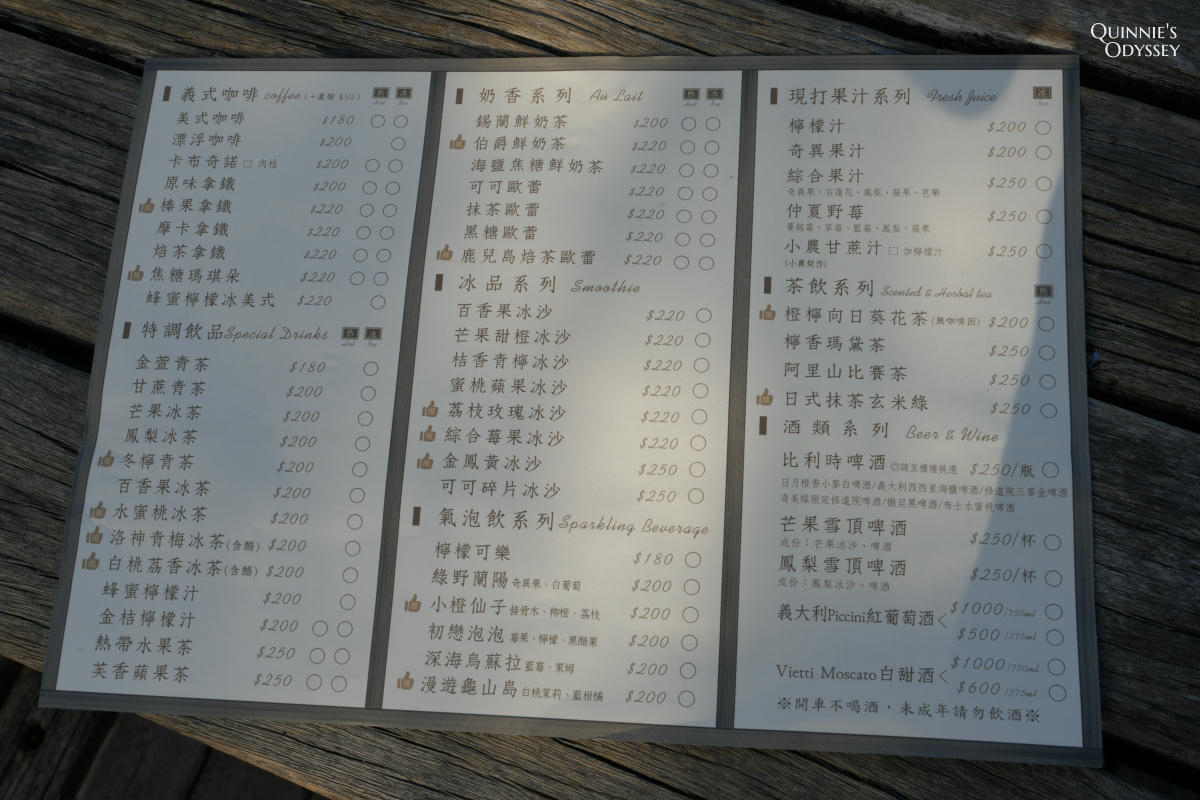 QUINNIE'S
ODYSSEY
義式咖啡 coffee (+濃縮 $50) 熱 Hot 冰 Ice
美式咖啡 $180 ○ ○
漂浮咖啡 $200 ○
卡布奇諾 □ 肉桂 $200 ○ ○
原味拿鐵 $200 ○ ○
榛果拿鐵 $220 ○ ○
摩卡拿鐵 $220 ○ ○
焙茶拿鐵 $220 ○ ○
焦糖瑪琪朵 $220 ○ ○
蜂蜜檸檬冰美式 $220 ○
特調飲品 Special Drinks 熱 Hot 冰 Ice
金萱青茶 $180 ○
甘蔗青茶 $200 ○
芒果冰茶 $200 ○
鳳梨冰茶 $200 ○
冬檸青茶 $200 ○
百香果冰茶 $200 ○
水蜜桃冰茶 $200 ○
洛神青梅冰茶(含醋) $200 ○
白桃荔香冰茶(含醋) $200 ○
蜂蜜檸檬汁 $200 ○
金桔檸檬汁 $200 ○ ○
熱帶水果茶 $250 ○ ○
芙香蘋果茶 $250 ○ ○
奶香系列 Au Lait 熱 Hot 冰 Ice
錫蘭鮮奶茶 $200 ○ ○
伯爵鮮奶茶 $220 ○ ○
海鹽焦糖鮮奶茶 $220 ○ ○
可可歐蕾 $220 ○ ○
抹茶歐蕾 $220 ○ ○
黑糖歐蕾 $220 ○ ○
鹿兒島焙茶歐蕾 $220 ○ ○
冰品系列 Smoothie
百香果冰沙 $220 ○
芒果甜橙冰沙 $220 ○
桔香青檸冰沙 $220 ○
蜜桃蘋果冰沙 $220 ○
荔枝玫瑰冰沙 $220 ○
綜合莓果冰沙 $220 ○
金鳳黃冰沙 $250 ○
可可碎片冰沙 $250 ○
氣泡飲系列 Sparkling Beverage
檸檬可樂 $180 ○
綠野蘭陽 奇異果、白葡萄 $200 ○
小橙仙子 接骨木、柳橙、荔枝 $200 ○
初戀泡泡 莓果、檸檬、黑醋果 $200 ○
深海烏蘇拉 藍莓、萊姆 $200 ○
漫遊龜山島 白桃茉莉、藍柑橘 $200 ○
現打果汁系列 Fresh Juice 冰 Ice
檸檬汁 $200 ○
奇異果汁 $200 ○
綜合果汁 $250 ○
奇異果、石蓮花、鳳梨、蘋果、芭樂
仲夏野莓 $250 ○
蔓越莓、草莓、藍莓、鳳梨、蘋果
小農甘蔗汁 □ 加檸檬汁 $250 ○
(小農契作)
茶飲系列 Scented & Herbal tea 熱 Hot
橙檸向日葵花茶(無咖啡因) $200 ○
檸香瑪黛茶 $250 ○
阿里山比賽茶 $250 ○
日式抹茶玄米綠 $250 ○
酒類系列 Beer & Wine
比利時啤酒 ◎請至櫃檯挑選 $250/瓶 ○
日月橙香小麥白啤酒/義大利西西里海鹽啤酒/修道院三麥金啤酒
奇美綠限定修道院啤酒/撒旦黑啤酒/布士水蜜桃啤酒
芒果雪頂啤酒 $250/杯 ○
成份：芒果冰沙、啤酒
鳳梨雪頂啤酒 $250/杯 ○
成份：鳳梨冰沙、啤酒
義大利Piccini紅葡萄酒 < $1000/750ml ○
$500/375ml ○
Vietti Moscato白甜酒 < $1000/750ml ○
$600/375ml ○
※開車不喝酒，未成年請勿飲酒※